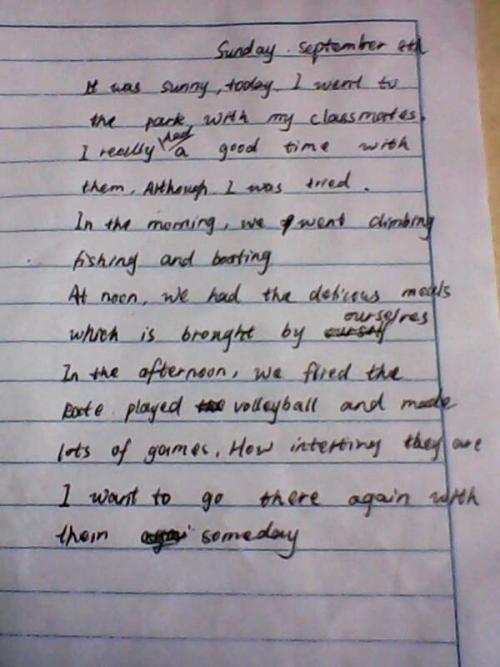 Sunday. september 8th
It was sunny, today. I went to
the park with my classmates.
I really had a good time with
them. Although I was tried.
In the morning, we went climbing
fishing and boating
At noon, we had the delicous meals
which is brought by ourselves
In the afternoon, we flied the
played volleyball and made
lots of games. How interting they are
I want to go there again with
them someday